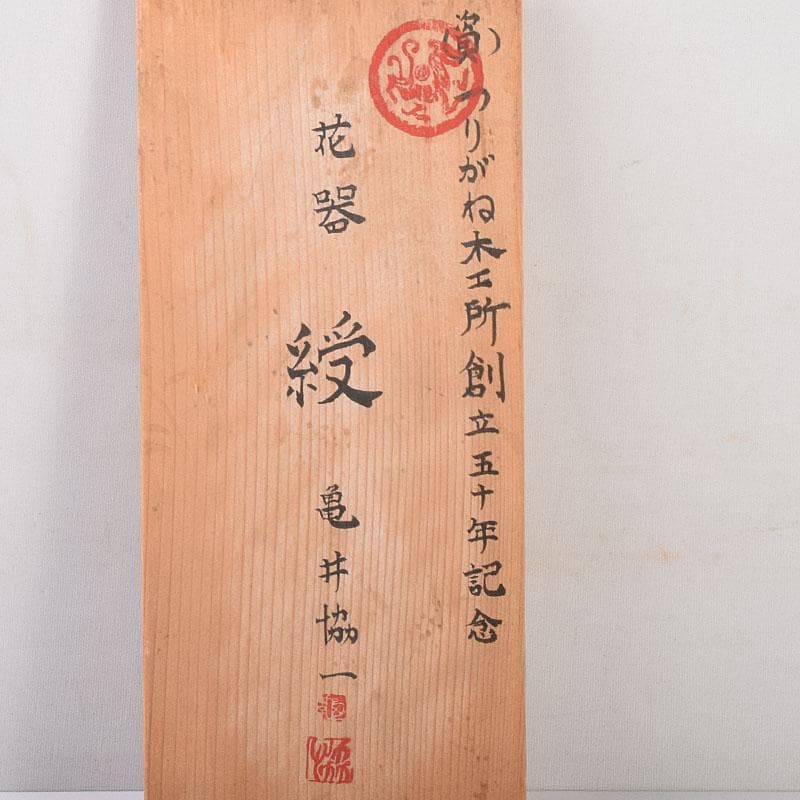 (資)つりがね木工所創立五十年記念
花器 綬 亀井協一
協